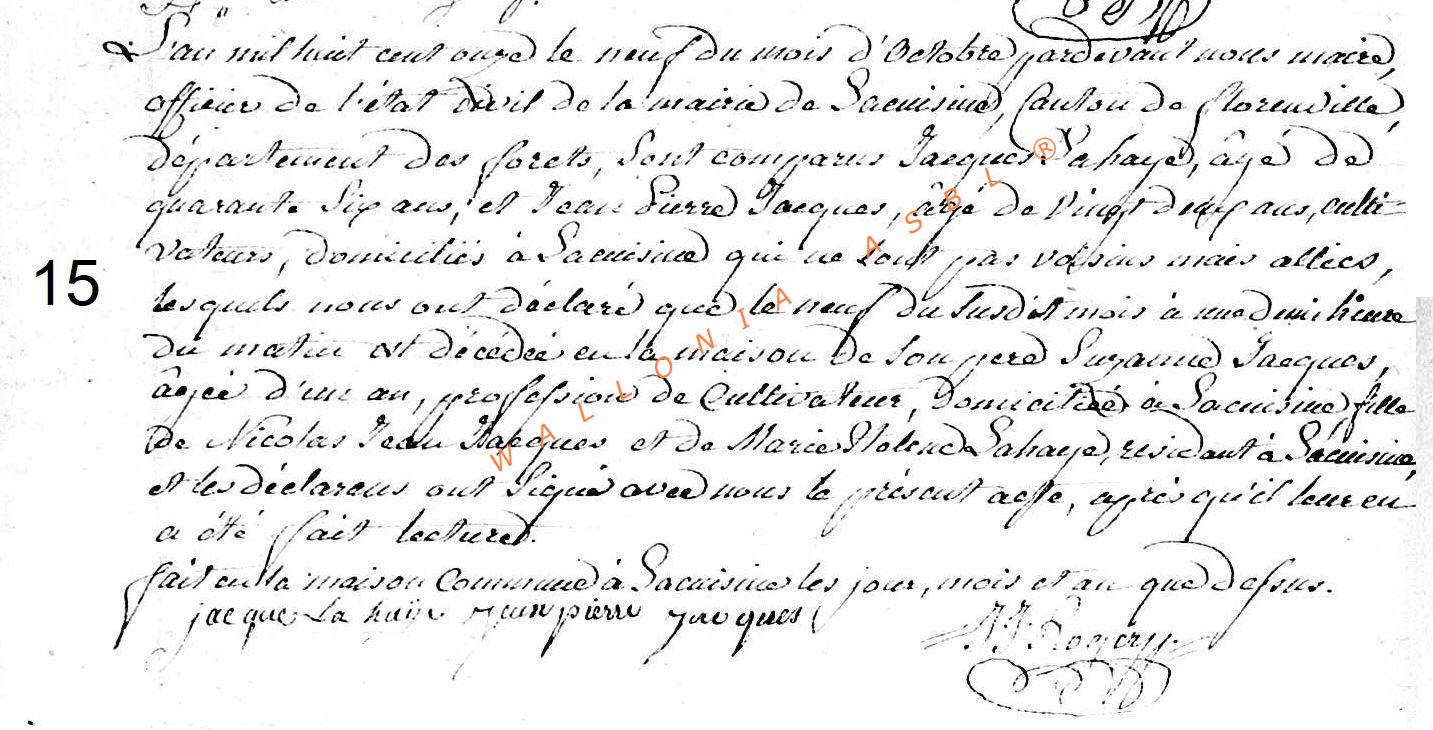 L'an mil huit cent onze le neuf du mois d'Octobre pardevant nous maire,
officier de l'état civil de la mairie de Lacuisine, Canton de florenville,
département des forets, sont comparus Jacques Lahaye, âgé de
quarante Six ans, et Jean Pierre Jacques, âgé de Vingt deux ans, culti-
vateurs, domiciliés à Lacuisine qui ne sont pas voisins mais alliés,
lesquels nous ont déclaré que le neuf du susdit mois à une demi heure
du matin est décédée en la maison de son pere Suzanne Jacques,
15
âgée d'un an, profession de Cultivateur, domiciliée à Lacuisine, fille
de Nicolas Jean Jacques et de Marie Helene Lahaye, résidant à Lacuisine,
et les déclarens ont signé avec nous le présent acte, après qu'il leur en
a été fait lecture.
fait en la maison Commune à Lacuisine les jour, mois et an que dessus.
jacque La haye jean pierre jacques
JJ Rogery
WALLONIA ASBL ®